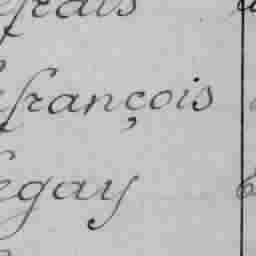 frais
françois
egay